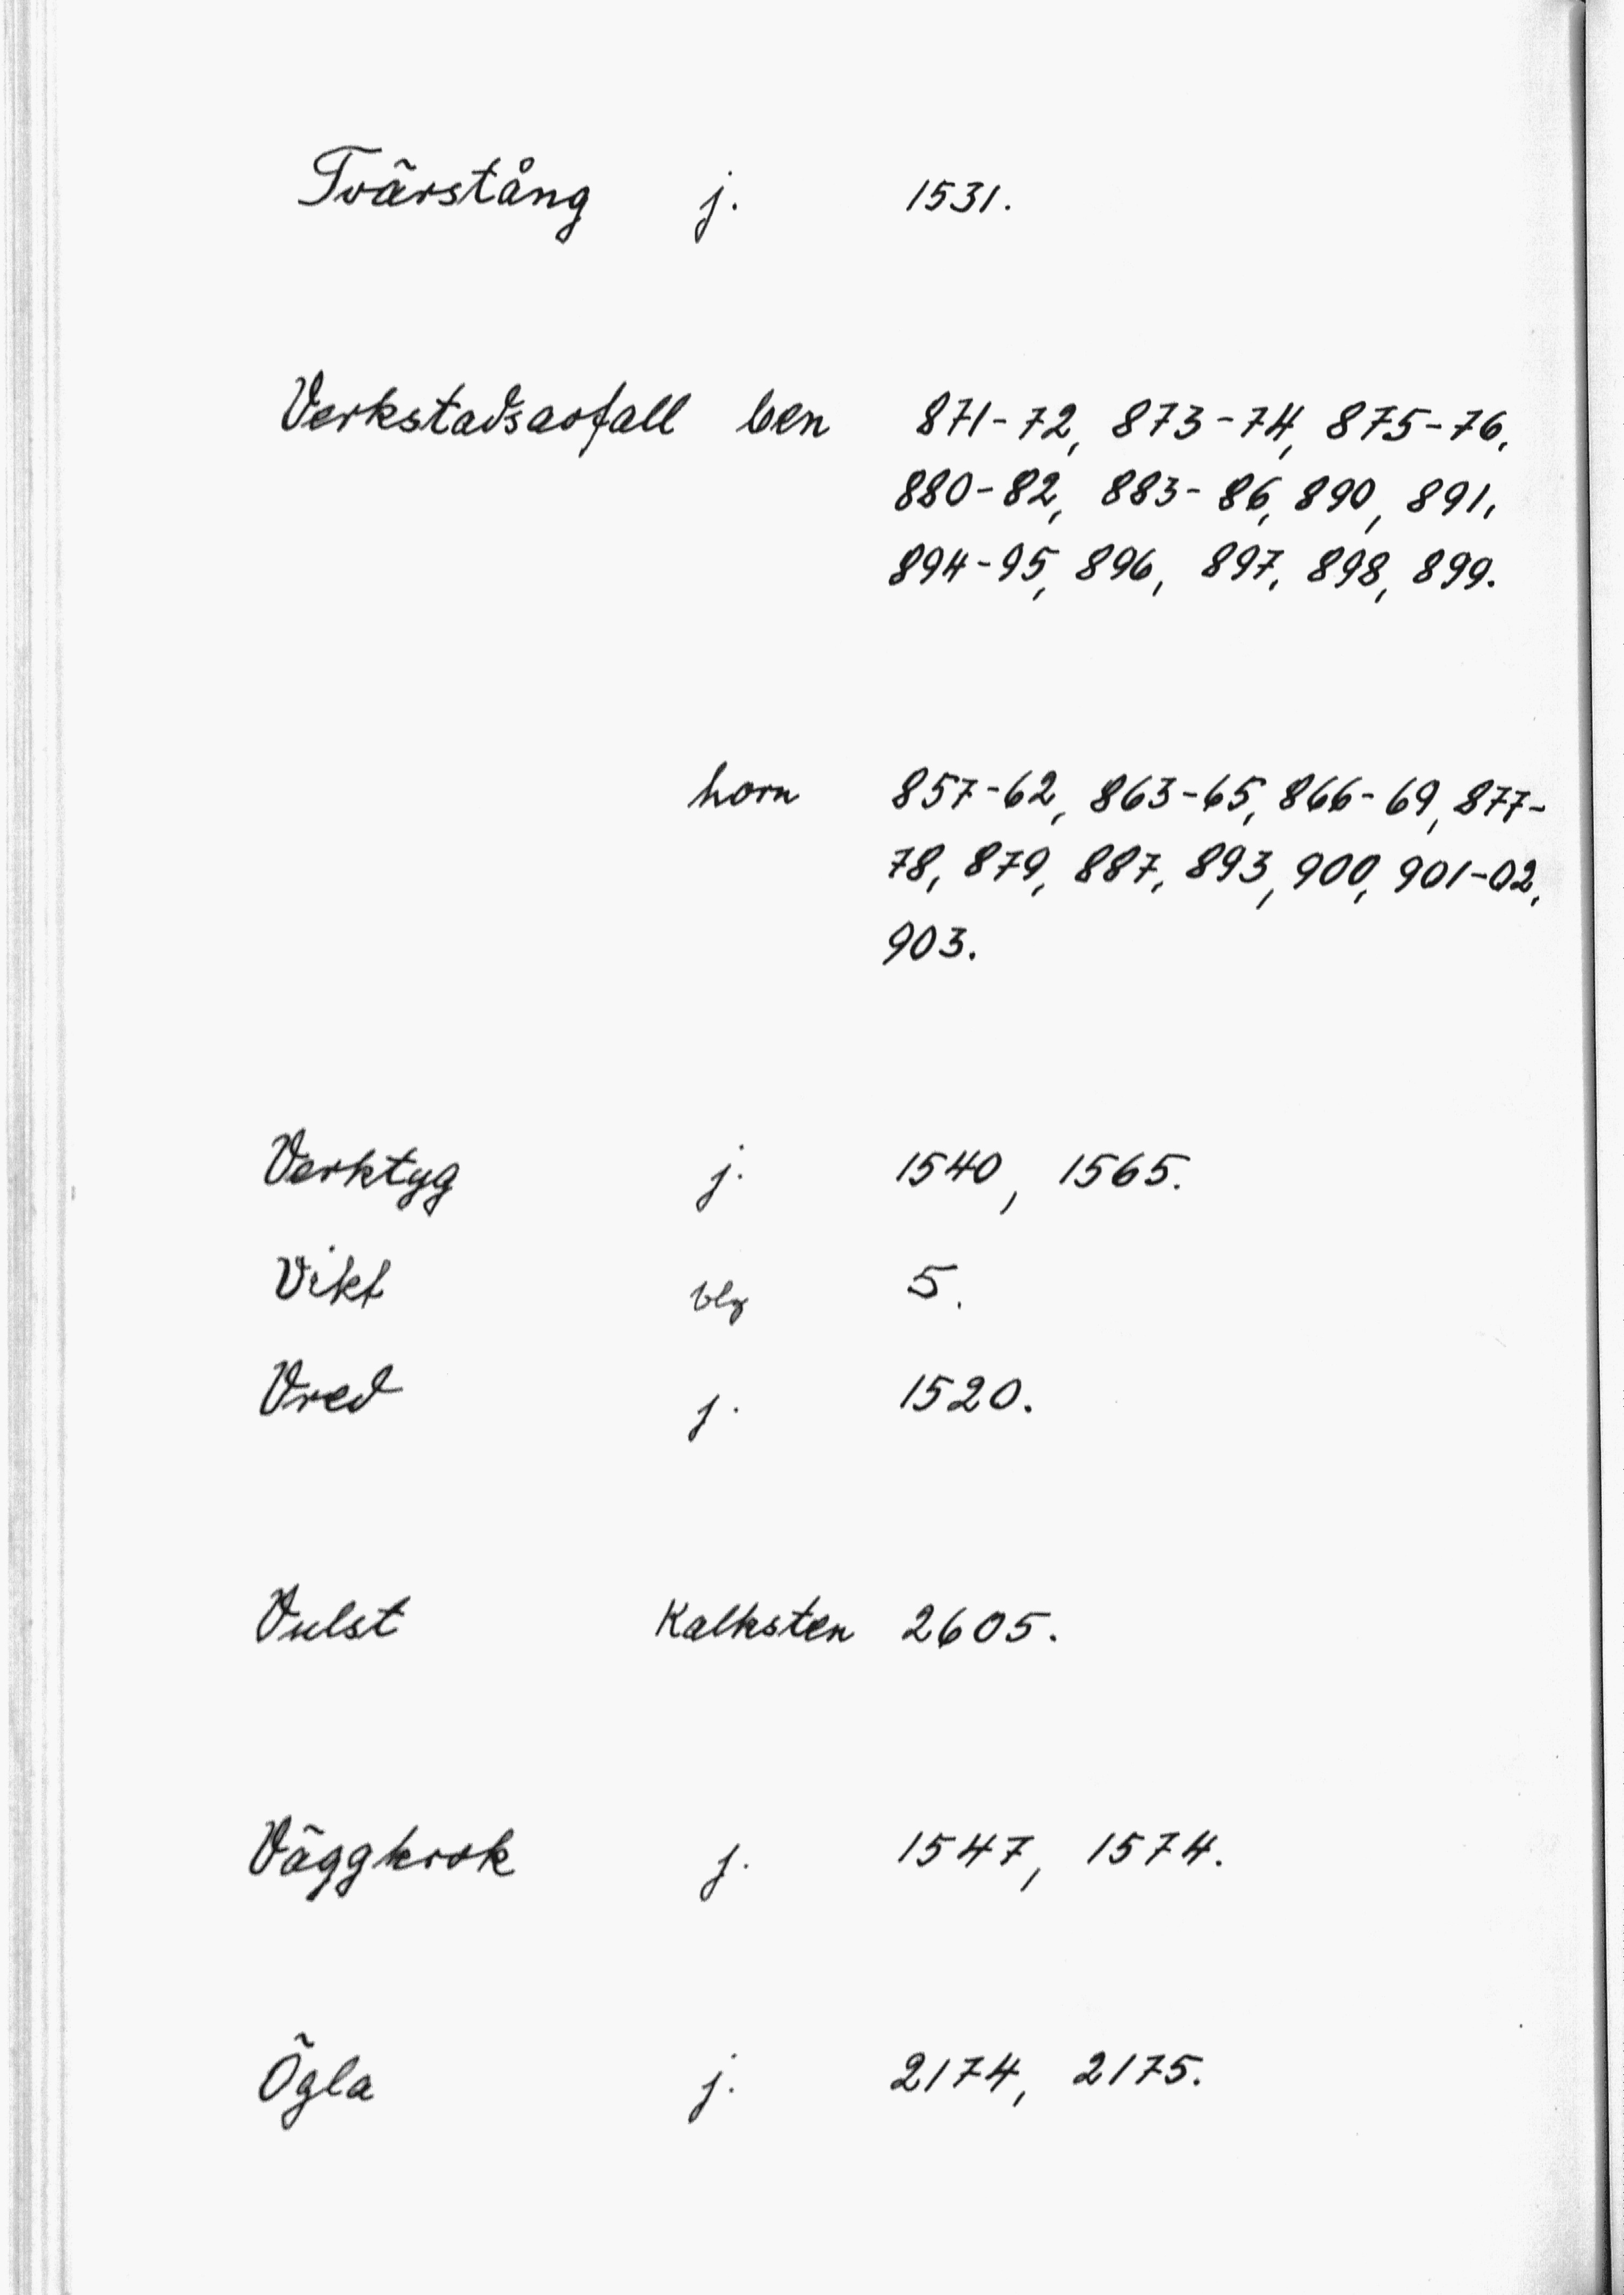 Tvärstång j. 1531.
Verkstadsavfall ben 871-72, 873-74, 875-76,
880-82, 883-86, 890, 891,
894-95, 896, 897, 898, 899.
horn 857-62, 863-65, 866-69, 877-
78, 879, 887, 893, 900, 901-02,
903.
Verktyg j. 1540, 1565.
Vikt bly 5.
Vred j. 1520.
Vulst Kalksten 2605.
Väggkrok j. 1547, 1574.
Ögla j. 2174, 2175.